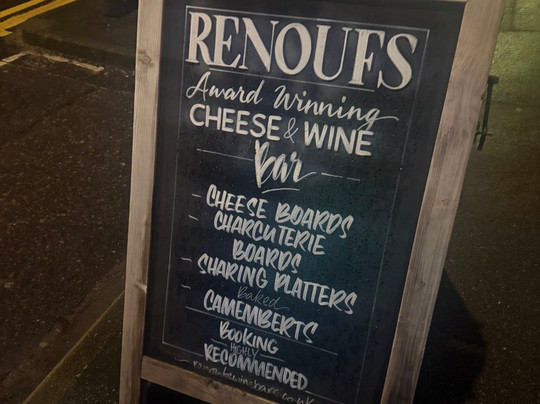 RENOUFS
Award Winning
CHEESE & WINE
Bar
- CHEESE BOARDS
- CHARCUTERIE
BOARDS
- SHARING PLATTERS
- Baked
CAMEMBERTS
BOOKING
HIGHLY
RECOMMENDED